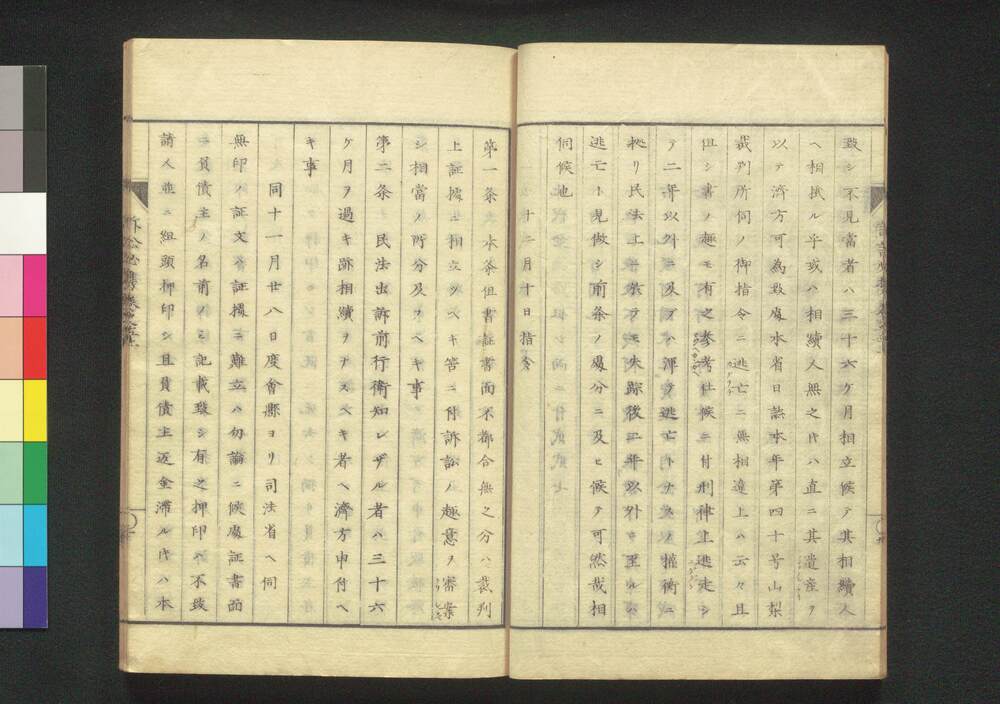 致シ不見當者ハ三十六ケ月相立候テ其相續人
ヘ相掛ル乎或ハ相續人無之片ハ直ニ其遺産ヲ
以テ濟方可為致處本省日誌本年第四十号山梨
裁判所伺ノ御指令ニ逃亡ニ無相違上ハ云々且
但シ書ノ趣モ有之參考仕候ニ付刑律上逃走シ
テ二年以外ニ及フハ渾テ逃亡トナスノ權衡ニ
拠リ民法上ニ於テモ失踪後二年以外ニ至ルハ
逃亡ト見做シ前条ノ處分ニ及ヒ候テ可然哉相
伺候也
十二月十日指令
第一条 本条但書証書面不都合無之分ハ裁判
上証據ニ相立ツヘキ筈ニ付訴訟ノ趣意ヲ審案
シ相當ノ所分及フヘキ事
第二条 民法出訴前行衛知レザル者ハ三十六
ケ月ヲ過キ跡相續ヲナスヘキ者ヘ濟方申付ヘ
キ事
同十一月廿八日度會縣ヨリ司法省ヘ伺
無印ノ証文ハ証據ニ難立ハ勿論ニ候處証書面
ニ負債主ノ名前ノミ記載致シ有之押印ハ不致
請人並ニ組頭押印シ且負債主返金滞ル片ハ本